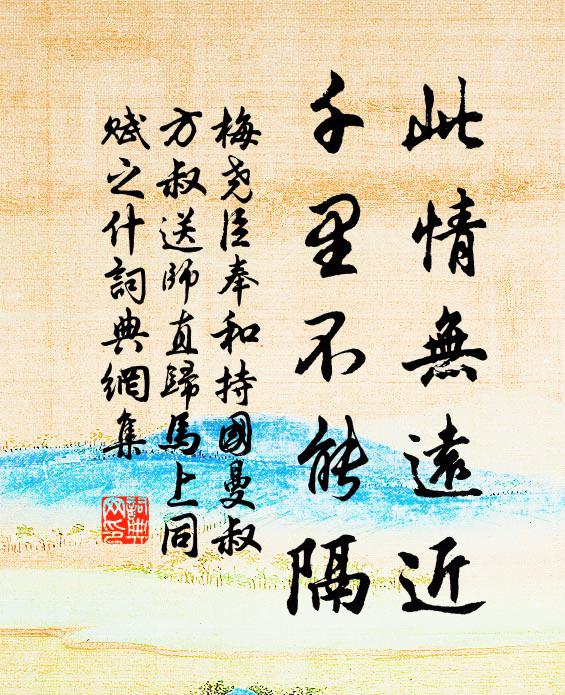 此情無遠近
千里不能隔
梅堯臣奉和持國曼叔
方叔送師直歸馬上同
賦之什詞典網集